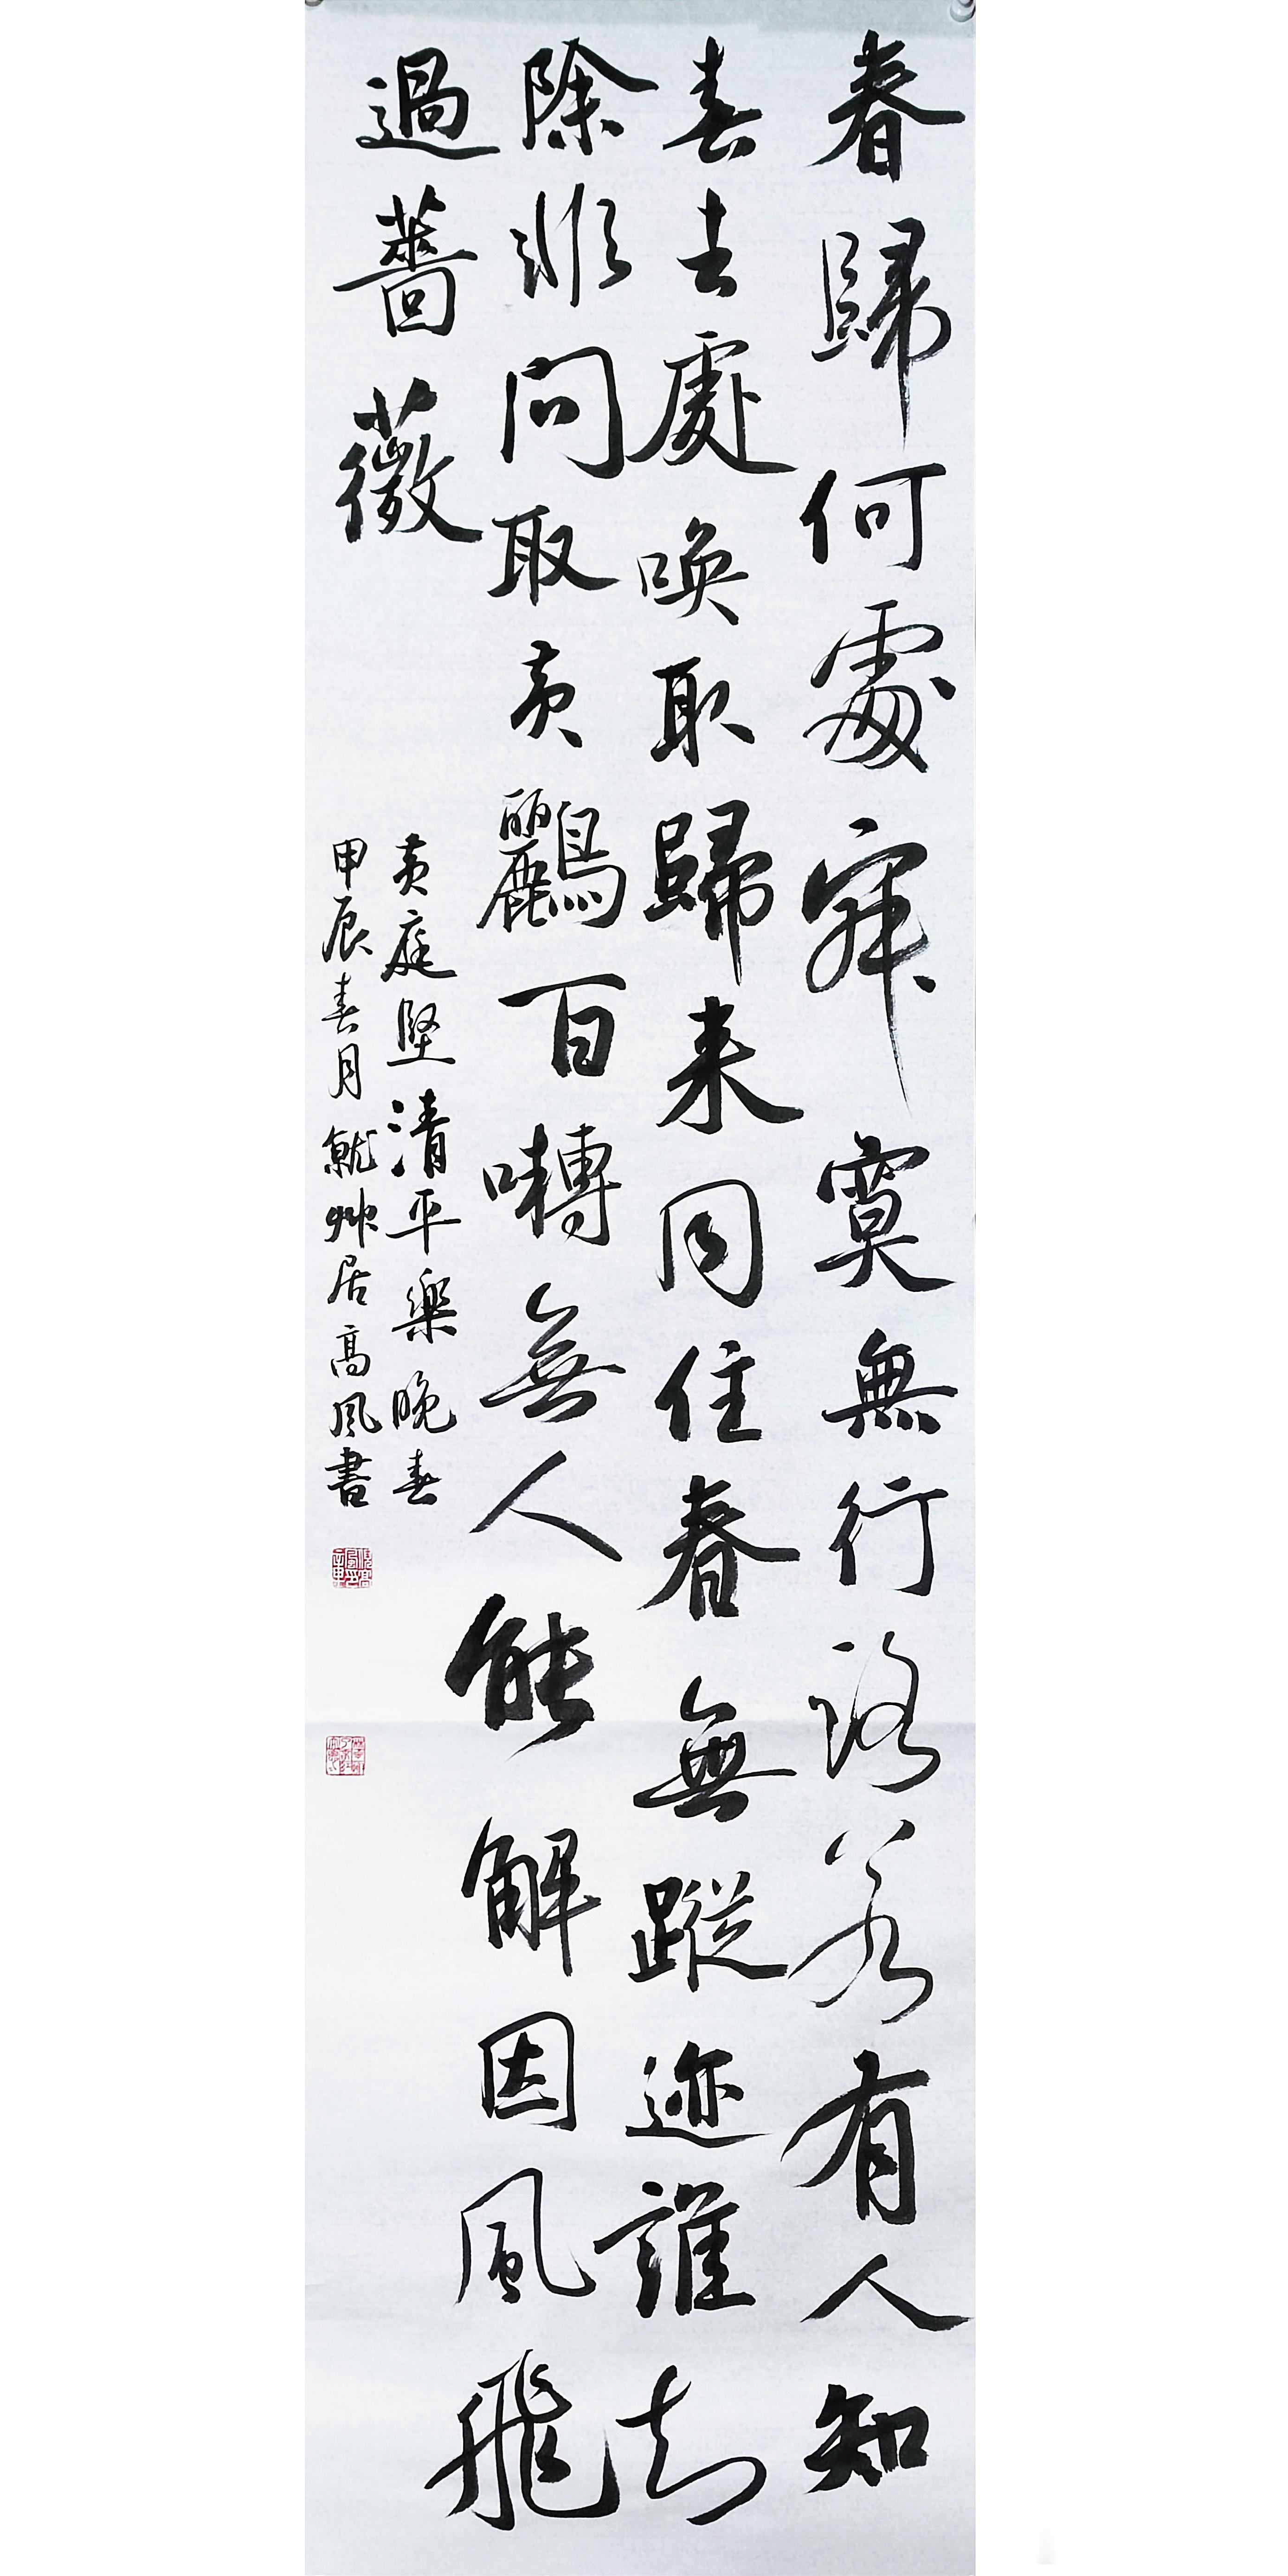 春歸何處寂寞無行路若有人知
春去處喚取歸来同住春無蹤迹誰知
除非問取黄鸝百囀無人能解因風飛
過薔薇
黄庭堅清平樂晚春
甲辰春月就艸居高风書